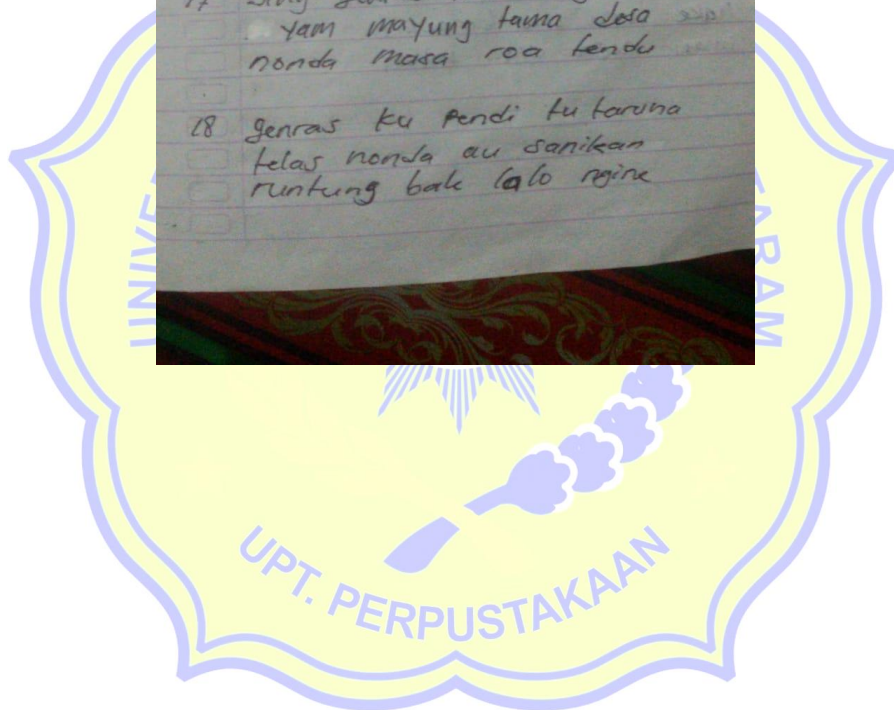 17
yam mayung tama dosa
nonda masa roa tendu
18 genras ku pendi tu taruna
telas nonda au sanikan
runtung bale lalo ngine
UNIVE
TARAM
UPT. PERPUSTAKAAN